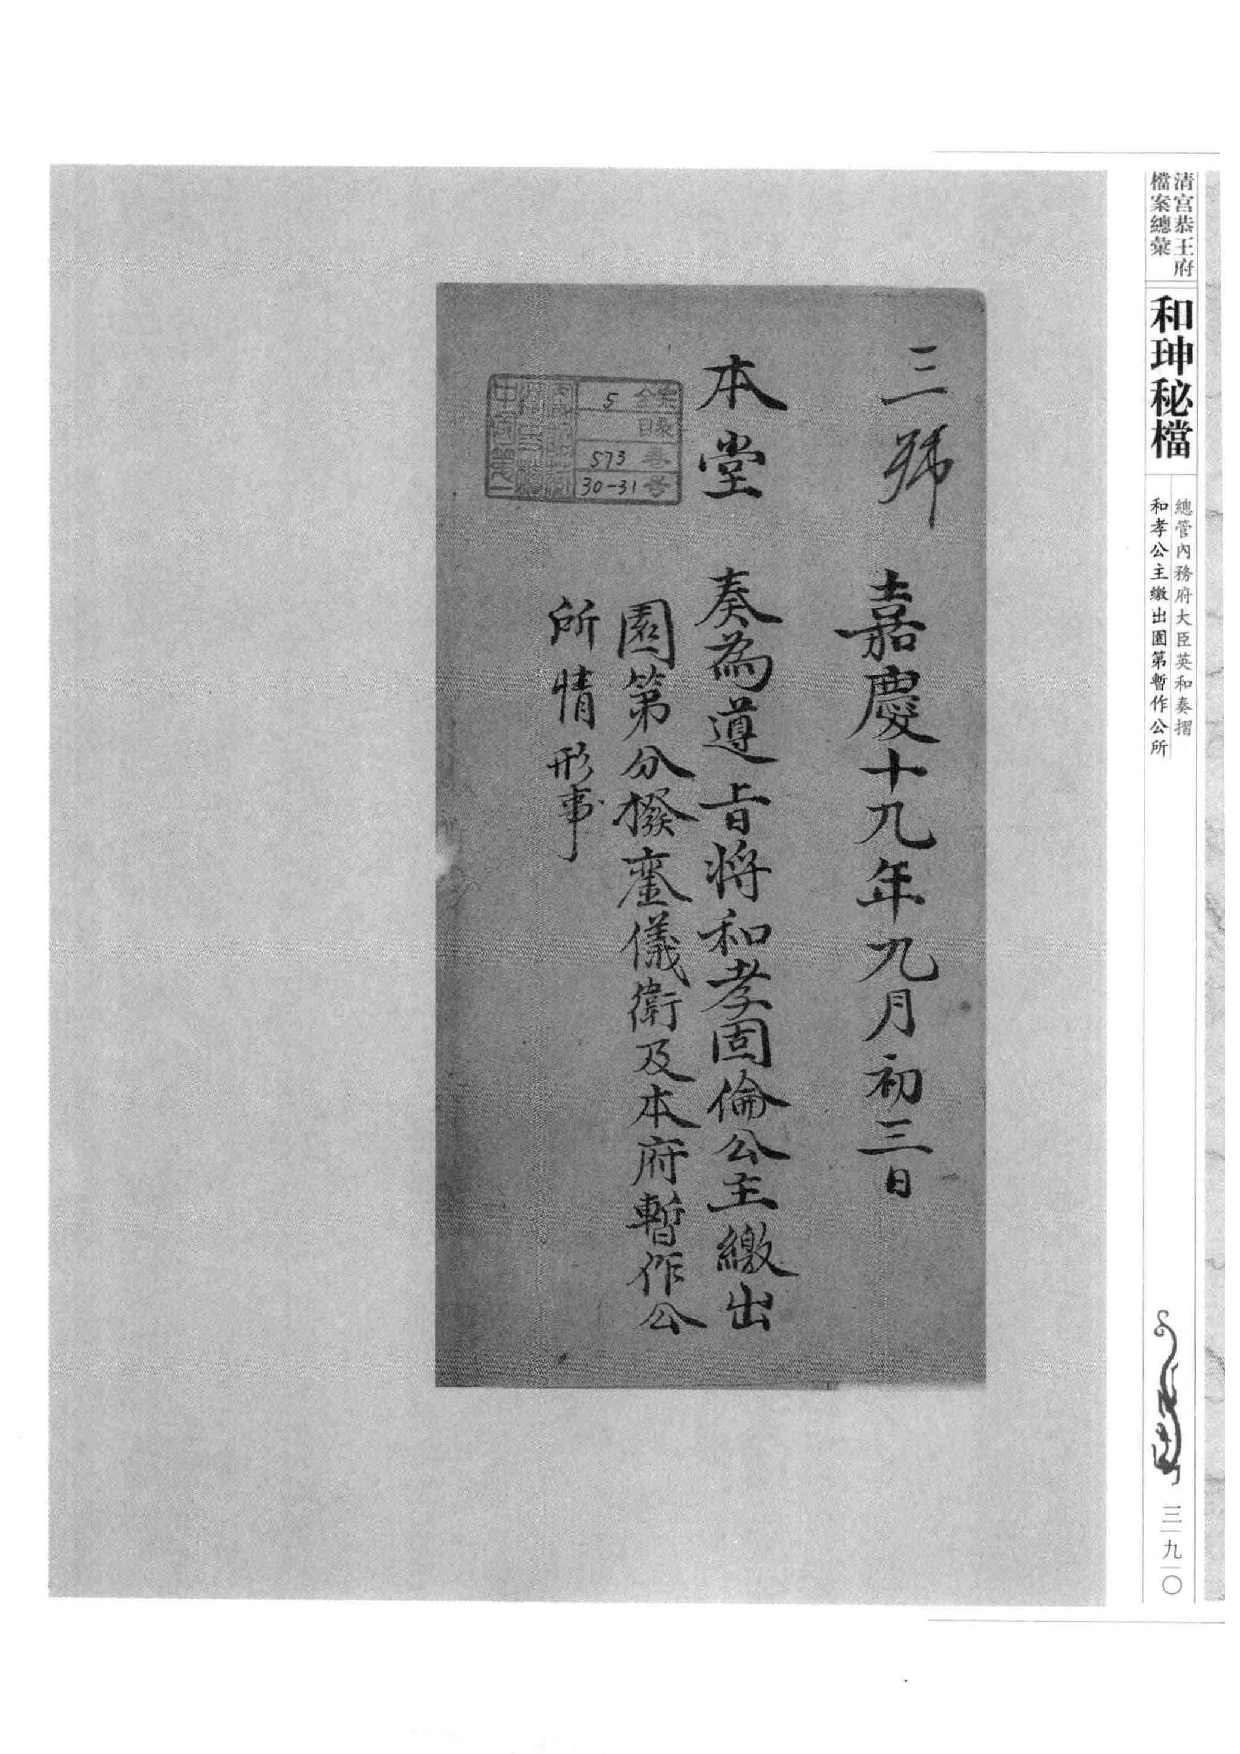 清宮恭王府
檔案總彙
和珅秘檔
總管內務府大臣英和奏摺
和孝公主繳出園第暫作公所
三九〇
三號 嘉慶十九年九月初三日
本堂 奏為遵旨將和孝固倫公主繳出
園第分撥鑾儀衛及本府暫作公
所情形事
全宗 5
目錄
卷 573
号 30-31